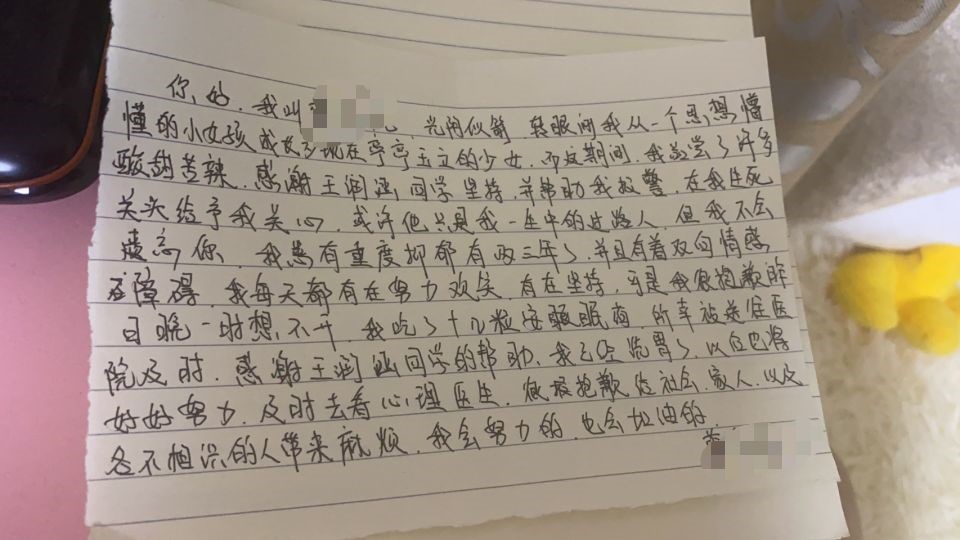 你好，我叫 光阴似箭 转眼间我从一个思想懵
懂的小女孩成 现在亭亭玉立的少女，而这期间，我 尝了许多
酸甜苦辣，感谢王润涵同学坚持，并帮助我报警，在我生死
关头给予我关心，或许他只是我一生中的过路人，但我不会
你，我患有重度抑郁有 三年了，并且有着双向情感
障碍，我每天都有在努力欢笑，有在坚持，可是我很抱歉昨
日晚一时想不开，我吃了十几粒安眠 ，所幸被送往医
院及时，感谢王润涵同学的帮助，我已经洗胃了，以后也将
好好努力，及时去看心理医生，很 抱歉给社会，家人，以及
各不相识的人带来麻烦，我会努力的，也会加油的，